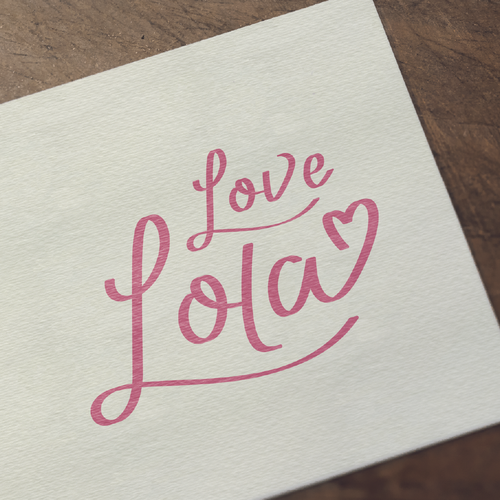 Love
Lola